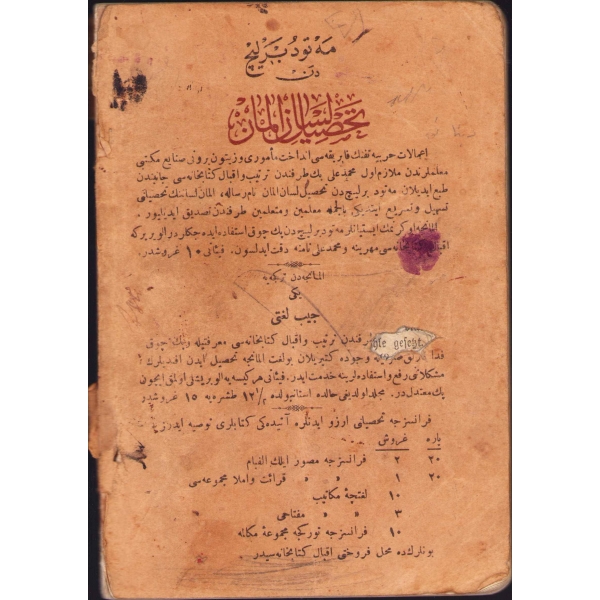 مه تود برليچ
دن
تحصيل لسان المان
اعمالات حربيه تفنك فابريقه سى انداخت مأمورى و زيتون برونى صنايع مكتبى
معلملرندن ملازم اول محمد على بك طرفندن ترتيب و اقبال كتابخانه سى جانبندن
طبع ايديلان مه تود برليچ دن تحصيل لسان المان نام رساله، المان لساننك تحصيلنى
تسهيل و تسريع ايتديكى بالجمله معلمين و متعلمين طرفندن تصديق ايديليور.
المانجه اوكرنمك ايستيانلر مه تود برليچ دن پك چوق استفاده ايده جكلردر الويرركه
اقبال كتابخانه سى مهرينه و محمد على نامنه دقت ايدلسون. فيئاتى ۱۰ غروشدر.
المانجه دن تركجه يه
يكى
جيب لغتى
طرفندن ترتيب و اقبال كتابخانه سى معرفتيله پك چوق
وجوده كتيريلان بو لغت المانجه تحصيل ايدن افنديلرك
مشكلاتنى رفع و استفاده لرينه خدمت ايدر. فيئاتى هر كيسه يه الويريشلى اولمق ايچون
پك معتدلدر. مجلد اولديغى حالده استانبولده ۱۲ ۱/۲ طشره يه ۱۵ غروشدر
hle gesetzt
فرانسزجه تحصيلنى ارزو ايدنلره آتيده كى كتابلرى توصيه ايدرز
پاره غروش
۲۰ ۲ فرانسزجه مصور ايلك الفبام
۲۰ ۱ » » قرائت و املا مجموعه سى
۱۰ لغتچۀ مكاتيب
۳ » » مفتاحى
۱۰ فرانسزجه توركجه مجموعۀ مكالمه
بونلرك ده محل فروختى اقبال كتابخانه سيدر